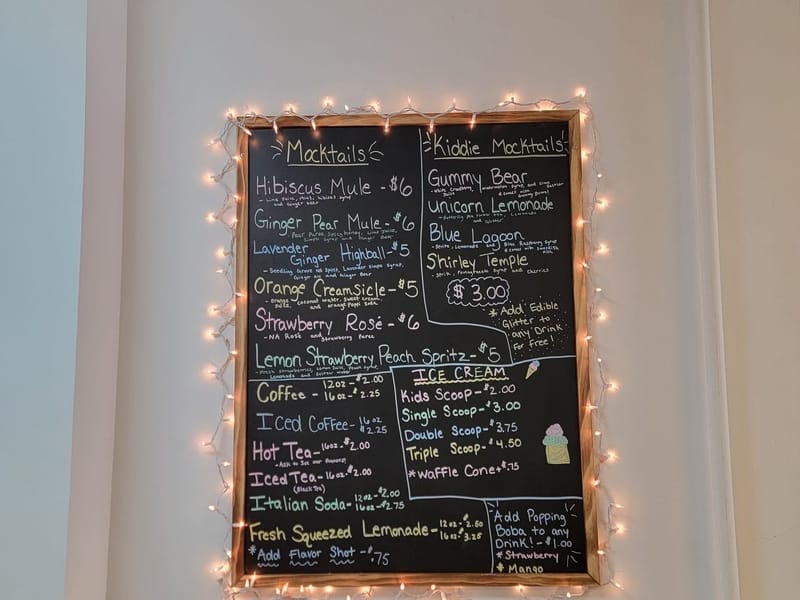 Mocktails
Hibiscus Mule - $6
- Lime Juice, Mint, hibiscus syrup
and Ginger beer
Ginger Pear Mule - $6
- Pear Puree, Spicy honey, Lime Juice,
Simple Syrup and Ginger Beer
Lavender
Ginger Highball - $5
- Seedlip Grove NA Spirit, Lavender Simple Syrup,
Ginger Ale and Ginger Beer
Orange Creamsicle - $5
- Orange Juice, coconut water, sweet cream,
and orange Poppi Soda
Strawberry Rosé - $6
- NA Rosé and Strawberry Puree
Lemon Strawberry Peach Spritz - $5
- Fresh Strawberries, Lemon Juice, Peach Syrup,
Lemonade and Seltzer Water
Kiddie Mocktails
Gummy Bear
Unicorn Lemonade
Blue Lagoon
- Sprite, Lemonade and Blue Raspberry Syrup
Shirley Temple
- Sprite, Pomegranate Syrup and Cherries
$3.00
* Add Edible
Glitter to
any Drink
For free!
Coffee - 12oz - $2.00
16oz - $2.25
Iced Coffee - 16oz
$2.25
Hot Tea - 16oz - $2.00
- Ask to see our flavors!
Iced Tea - 16oz - $2.00
(Black Tea)
Italian Soda - 12oz - $2.00
16oz - $2.75
Fresh Squeezed Lemonade - 12oz - $2.50
16oz - $3.25
* Add Flavor Shot - $.75
ICE CREAM
Kids Scoop - $2.00
Single Scoop - $3.00
Double Scoop - $3.75
Triple Scoop - $4.50
* Waffle Cone + $.75
Add Popping
Boba to any
Drink! - $1.00
* Strawberry
* Mango